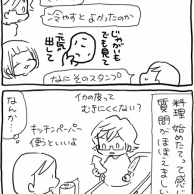 冷やすとよかったのか
じゃがいも
でも見て
元気
出して
なにそのスタンプ
料理始めたてって感じの
質問がほほえましい
イカの皮って
むきにくくない?
なんか…
キッチンペーパー
使うといいよ